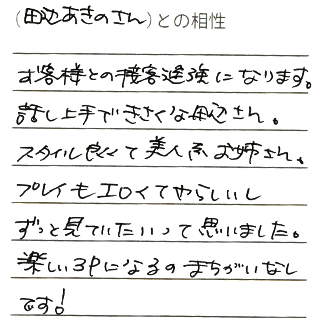 (田辺あきのさん)との相性
お客様との接客勉強になります。
話し上手できさくな田辺さん。
スタイル良くて美人系お姉さん。
プレイもエロくてやらしいし
ずっと見ていたいって思いました。
楽しい3Pになるのまちがいなし
です!